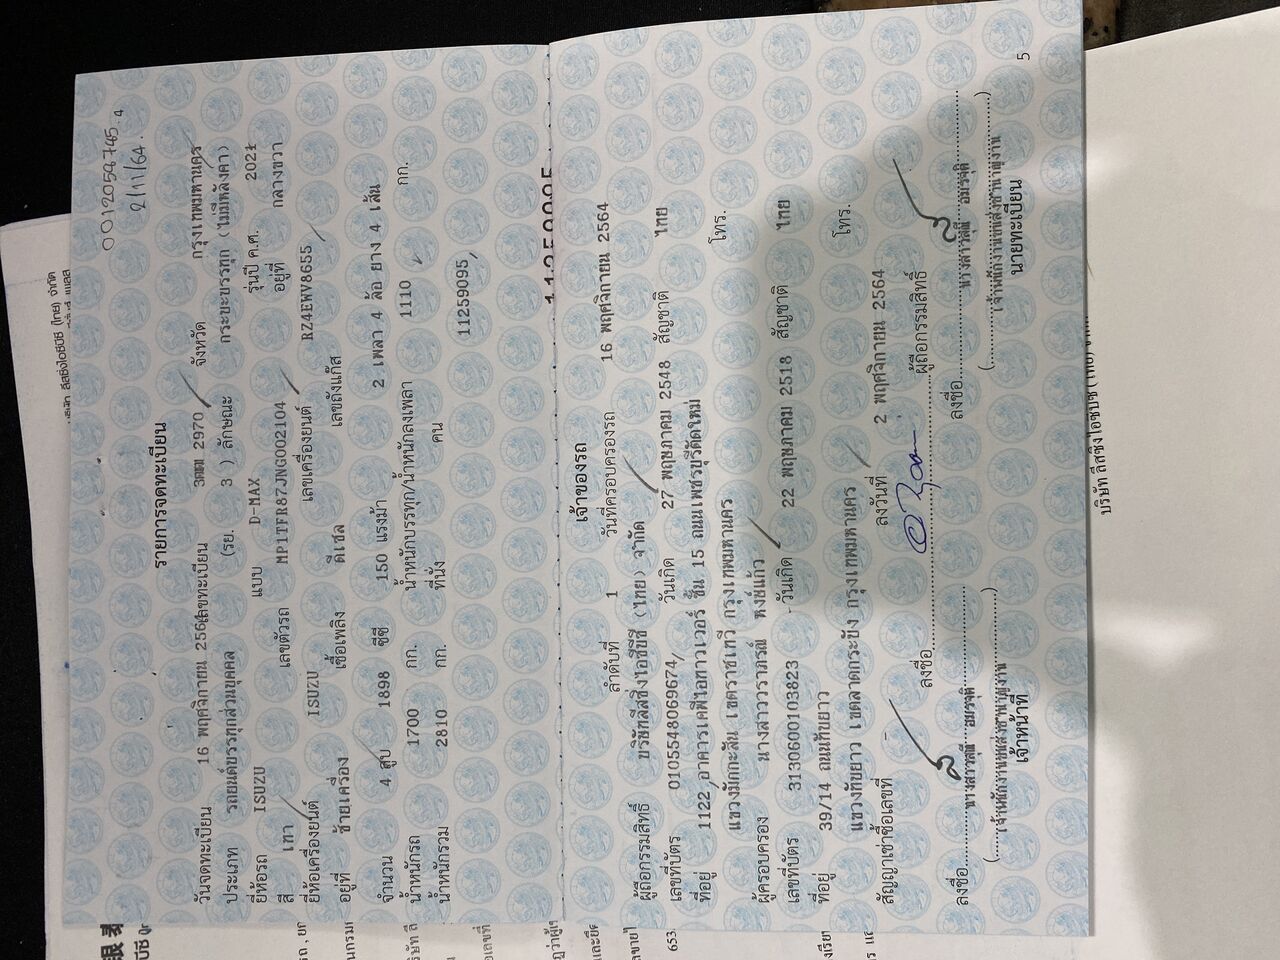 0012058745.4
2/11/64.
รายการจดทะเบียน
วันจดทะเบียน 16 พฤศจิกายน 2564 เลขทะเบียน 3ฒฒ 2970 จังหวัด กรุงเทพมหานคร
ประเภท รถยนต์บรรทุกส่วนบุคคล (รย. 3 ) ลักษณะ กระบะบรรทุก (ไม่มีหลังคา)
ยี่ห้อรถ ISUZU แบบ D-MAX รุ่นปี ค.ศ. 2021
สี เทา เลขตัวรถ MP1TFR87JNG002104 อยู่ที่ กลางขวา
ยี่ห้อเครื่องยนต์ ISUZU เลขเครื่องยนต์ RZ4EWV8655
อยู่ที่ ซ้ายเครื่อง เชื้อเพลิง ดีเซล เลขถังแก๊ส
จำนวน 4 สูบ 1898 ซีซี 150 แรงม้า 2 เพลา 4 ล้อ ยาง 4 เส้น
น้ำหนักรถ 1700 กก. น้ำหนักบรรทุก/น้ำหนักลงเพลา 1110 กก.
น้ำหนักรวม 2810 กก. ที่นั่ง คน
11259095
เจ้าของรถ
ลำดับที่ 1 วันที่ครอบครองรถ 16 พฤศจิกายน 2564
ผู้ถือกรรมสิทธิ์ บริษัทลีสซิ่งไอซีบีซี (ไทย) จำกัด
เลขที่บัตร 0105548069674 วันเกิด 27 พฤษภาคม 2548 สัญชาติ ไทย
ที่อยู่ 1122 อาคารเคพีไอทาวเวอร์ ชั้น 15 ถนนเพชรบุรีตัดใหม่
แขวงมักกะสัน เขตราชเทวี กรุงเทพมหานคร โทร.
ผู้ครอบครอง นางสาววราภรณ์ หงษ์แก้ว
เลขที่บัตร 3130600103823 วันเกิด 22 พฤษภาคม 2518 สัญชาติ ไทย
ที่อยู่ 39/14 ถนนทับยาว
แขวงทับยาว เขตลาดกระบัง กรุงเทพมหานคร โทร.
สัญญาเช่าซื้อเลขที่ ลงวันที่ 2 พฤศจิกายน 2564
ลงชื่อ ผู้ถือกรรมสิทธิ์
ลงชื่อ ลงชื่อ
เจ้าหน้าที่ นายทะเบียน
5